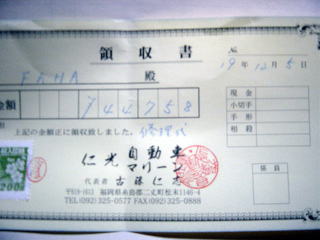 領収書
№
19年12月5日
FAHA 殿
金額 ¥744758
現金
小切手
手形
相殺
上記の金額正に領収致しました。 修理代
係員
仁光自動車
マリーン
代表者 古藤仁志
〒819-1613 福岡県糸島郡二丈町松末1146-4
TEL(092)325-0577 FAX(092)325-0888
200